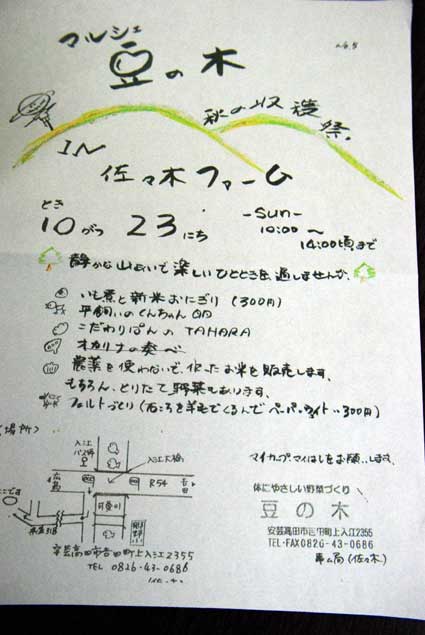 マルシェ
豆の木
no.5
秋の収穫祭.
IN
佐々木ファーム
とき
10がつ 23にち
-Sun-
10:00〜
14:00頃まで
静かな山あいで楽しいひとときを過しませんか、
いも煮と新米おにぎり（300円）
平飼いのくんちゃん
こだわりぱんのTAHARA
オカリナの奏べ
農薬を使わないで作ったお米を販売します、
もちろん、とりたて野菜もあります、
フェルトづくり（石ころを羊毛でくるんでペーパーウェイト..300円）
（場所）
マイカップ、マイはしをお願いします、
入江バス停
入江大橋
広島
R54
吉田
可愛川
ここです
安芸高田市吉田町上入江2355
TEL 0826-43-0686
体にやさしい野菜づくり
豆の木
安芸高田市吉田町上入江2355
TEL・FAX0826-43-0686
事ム局（佐々木）